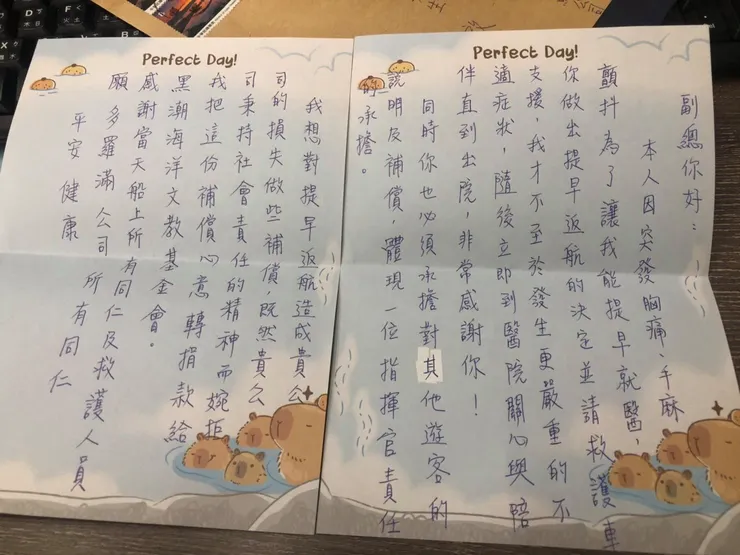 Perfect Day!
副總你好：
本人因突發胸痛、手麻
顫抖為了讓我能提早就醫，
你做出提早返航的決定並請救護車
支援，我才不至於發生更嚴重的不
適症狀，隨後立即到醫院關心與陪
伴直到出院，非常感謝你！
同時你也必須承擔對其他遊客的
說明及補償，體現一位指揮官責任
的承擔。
Perfect Day!
我想對提早返航造成貴公
司的損失做些補償，既然貴公
司秉持社會責任的精神而婉拒
我把這份補償心意轉捐款給
黑潮海洋文教基金會。
感謝當天船上所有同仁及救護人員
願多羅滿公司所有同仁
平安健康